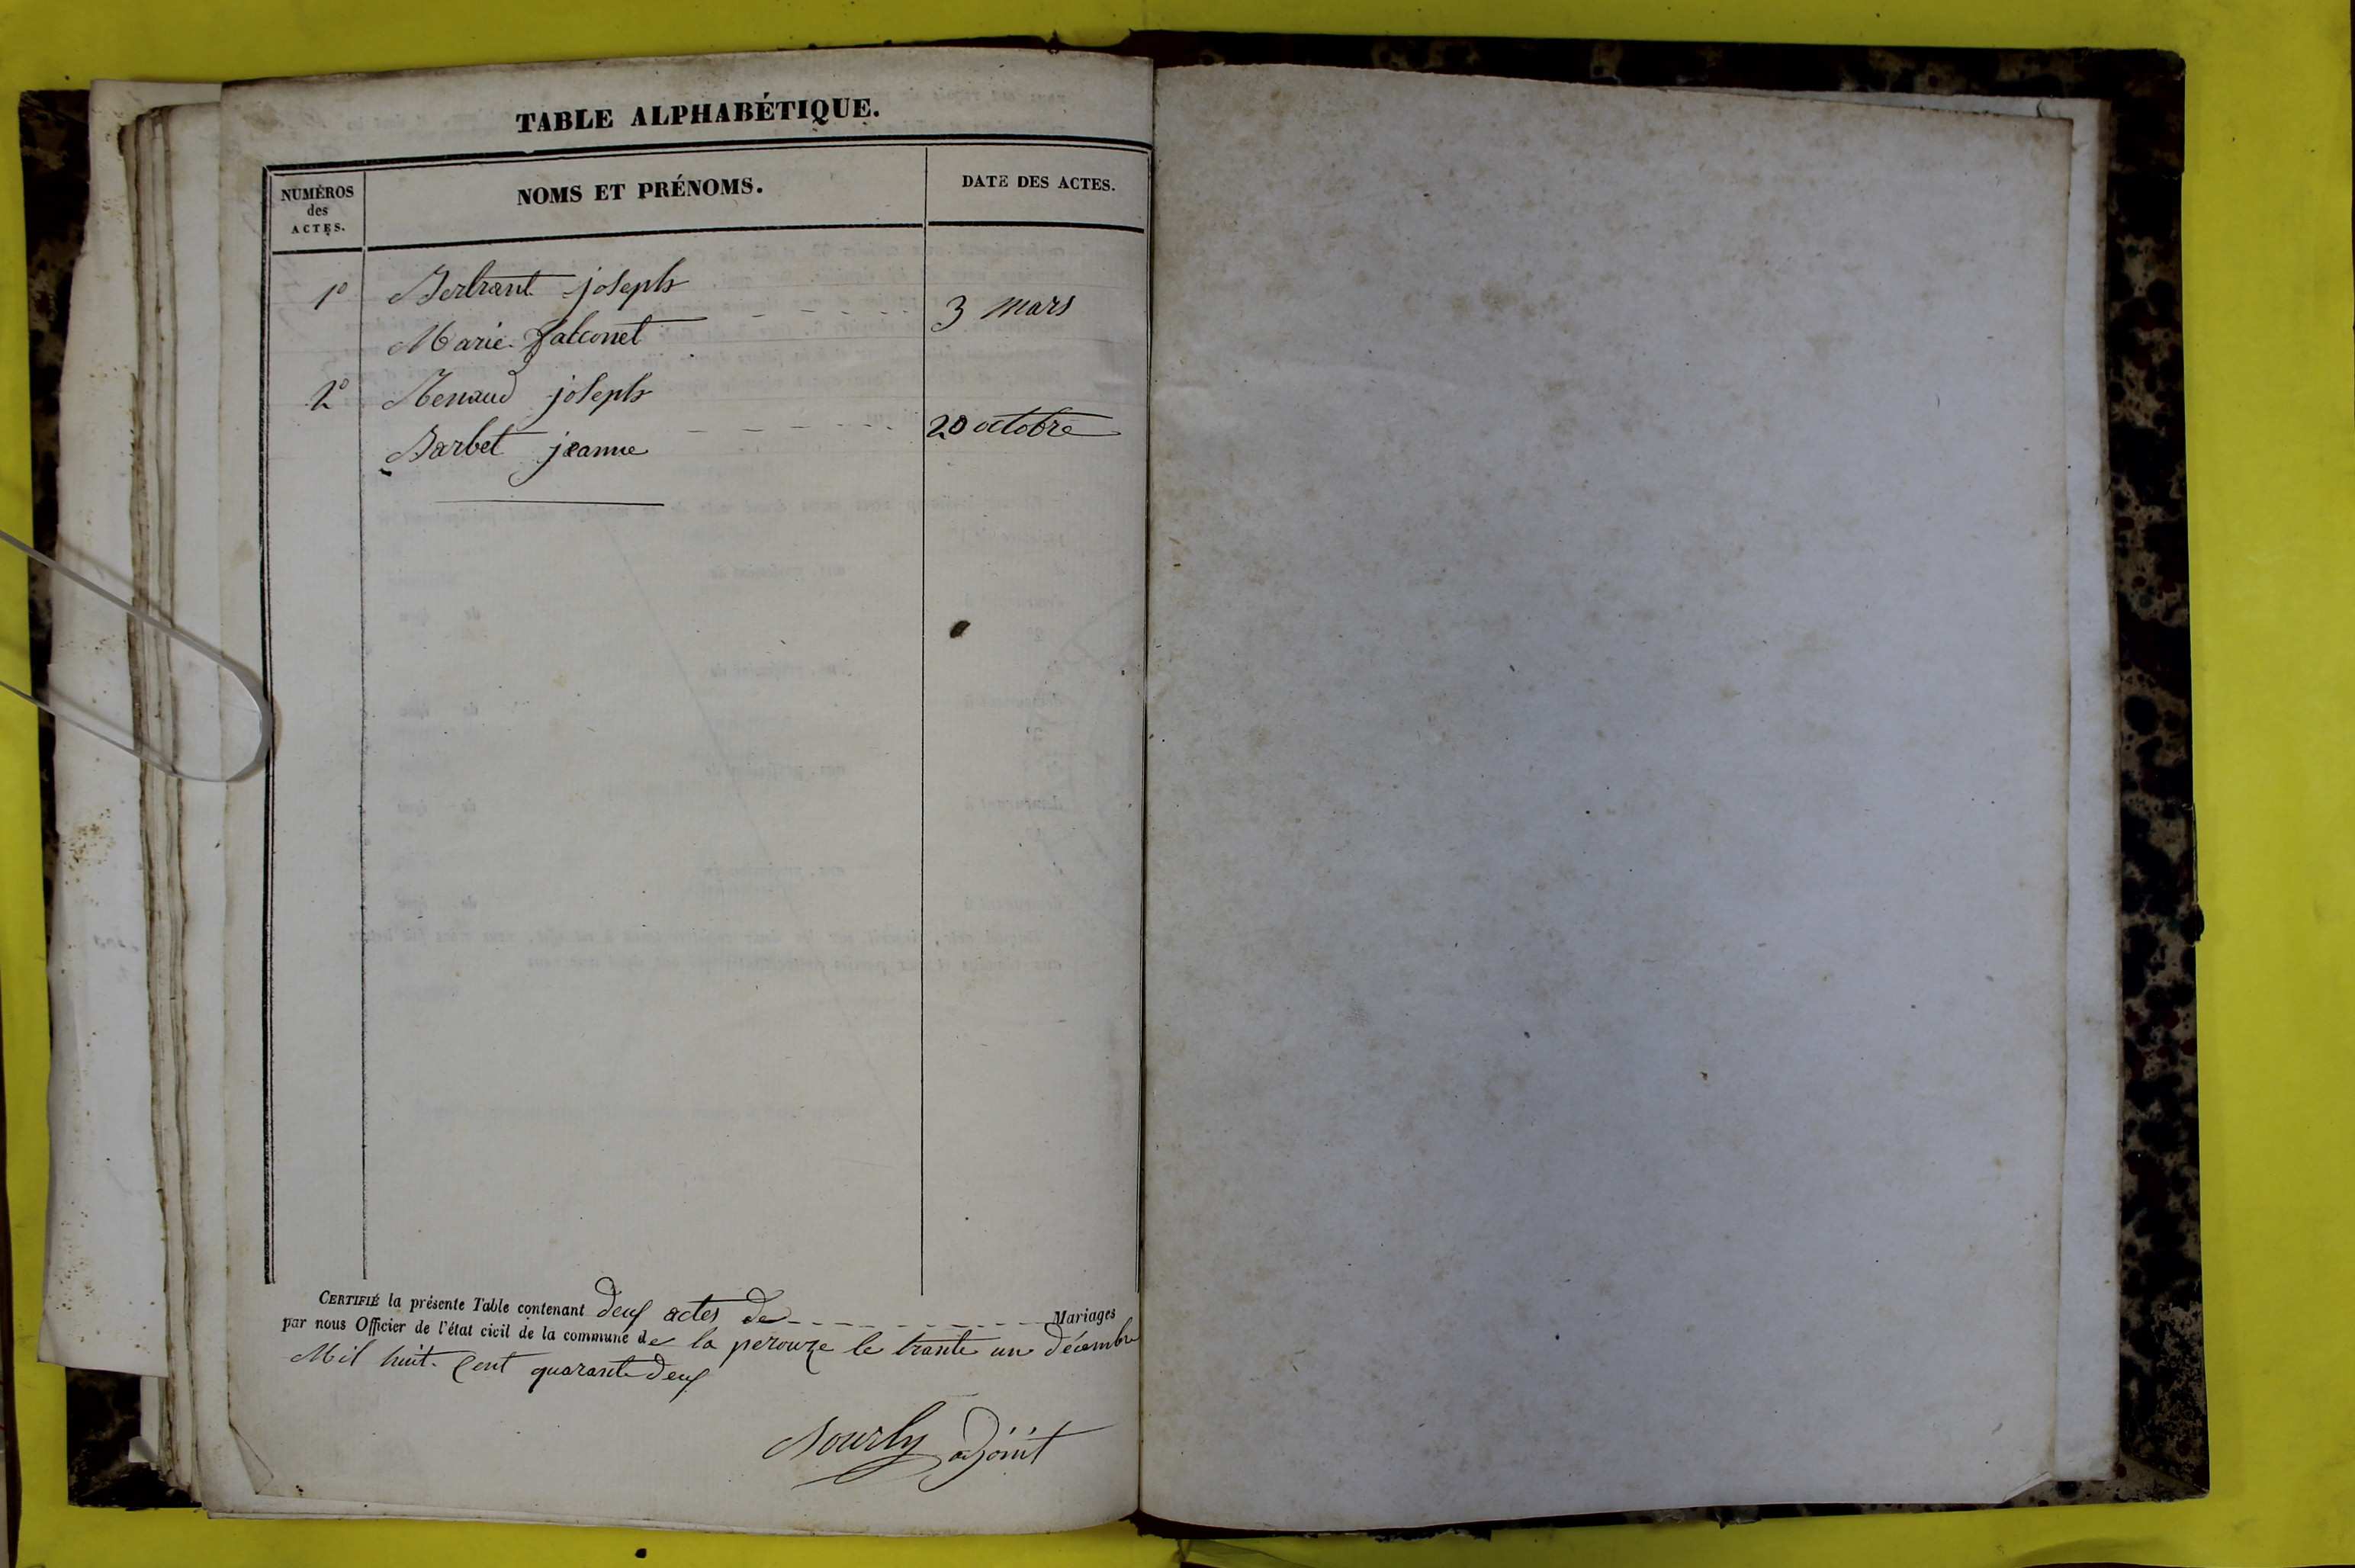 TABLE ALPHABÉTIQUE.
NUMÉROS
des
ACTES.
NOMS ET PRÉNOMS.
DATE DES ACTES.
1º Bertrant joseph
3 mars
Marie falconet
2º Renaud joseph
20 octobre
Barbet jeanne
CERTIFIÉ la présente Table contenant deux actes de Mariages
par nous Officier de l'état civil de la commune de la perouze le trante un décembre
Mil huit Cent quarante deux
adjoint